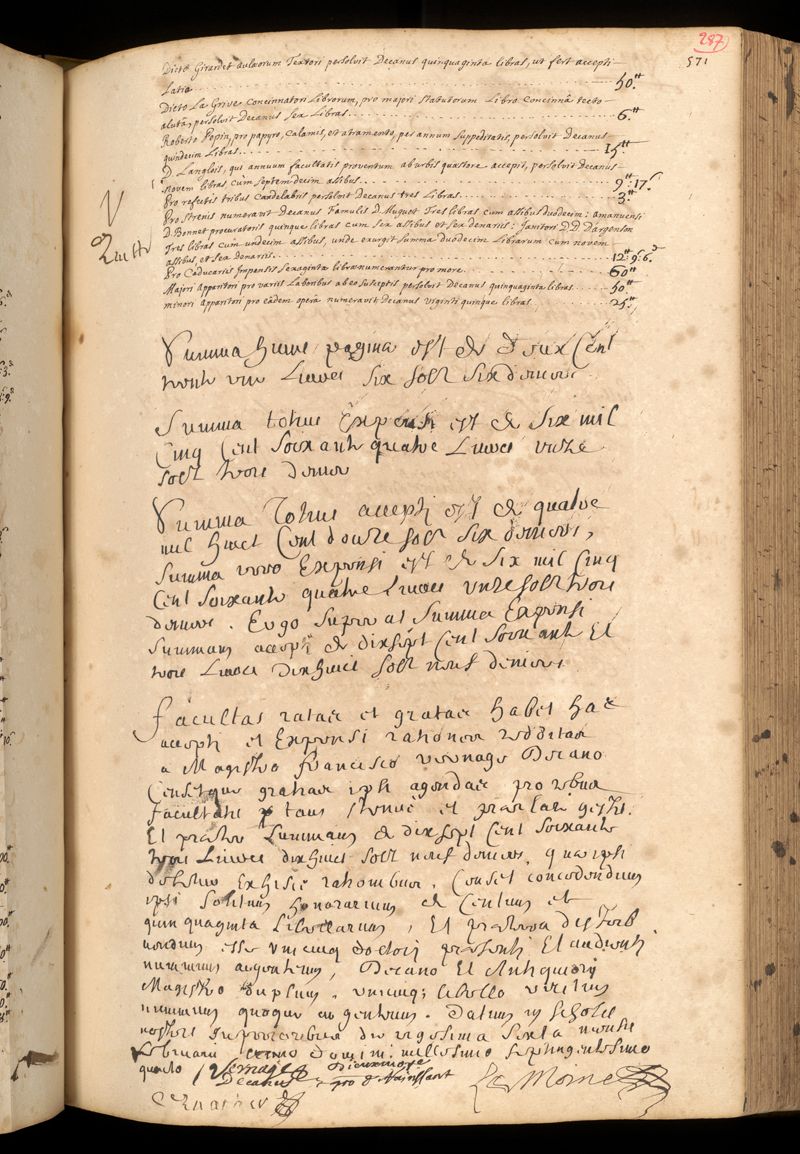 287
571
Dicto Girardet aulæorum Textori persolvit Decanus quinquaginta libras, ut fert accepti-
latio 50.tt
Dicto La Grive concinnatori Librorum, pro majori statutorum Libro concinnâ tecto
alutâ, persolvit Decanus sex Libras 6.tt
Roberto Pepin, pro papyro, Calamis, et atramento, per annum suppeditatis, persolvit Decanus
quindecim Libras 15.tt
D. Langlois, qui annuum facultatis proventum ab urbis quæstore accepit, persolvit Decanus
novem libras cum septemdecim assibus 9tt:17s
Pro refectis tribus candelabris persolvit Decanus tres Libras 3.tt
Pro strenis numeravit Decanus Famulis D. Muguet Tres libras cum assibus duodecim: amanuensi
D. Bonnet procuratoris quinque libras cum sex assibus et sex denariis: Janitori D.D. Dargenson
Tres libras cum undecim assibus, unde exurgit summa duodecim Librarum cum novem
assibus, et sex denariis 12tt:9s.6d
Pro Caducariis Impensis sexaginta libræ numerantur pro more 60tt
Majori Apparitori pro variis Laboribus ab eo susceptis persolvit Decanus quinquaginta libras 50.tt
minori Apparitori pro eâdem operâ numeravit Decanus viginti quinque libras 25.tt
Summa hujus paginæ est de Deux Cent
trente une Livres six solz six deniers
Summa totius Expensi est de six mil
Cinq Cent soixante quatre Livres unze
solz trois deniers
Summa Totius accepti est de quatre
mil huict Cent douze solz six deniers,
Summa vero Expensi est de six mil Cinq
Cent soixante quatre Livres unze solz trois
deniers. Ergo superat Summa Expensi
summam accepti de dixsept Cent soixante Et
trois Livres dixhuict solz neuf deniers
Facultas ratas et gratas habet has
accepti et Expensi rationes redditas
a Magistro francisco vernage Decano
Censetque gratias ipsi agendas pro rebus
facultatis tam strenue et præclare gestis.
Et præter Summam de dixsept Cent soixante
trois Livres dixhuict solz neuf deniers, quas ipsi
debitas ex hisce rationibus, Censet concedendum
ipsi solitum honorarium de Centum et
quinquaginta Libellarum, Et præterea distrib
uendum esse unicuique doctori præsenti Et audienti
nummum argenteum, Decano Et Antiquiori
Magistro duplum, unicuique libello
nummum quoque argenteum. Datum in scholis
nostris superioribus die vigesima sexta mensis
februarii anno Domini millesimo septingentesimo
quarto Vernage
Decanus
Dieuxivoye
pro D. Hainssant
Le Moine